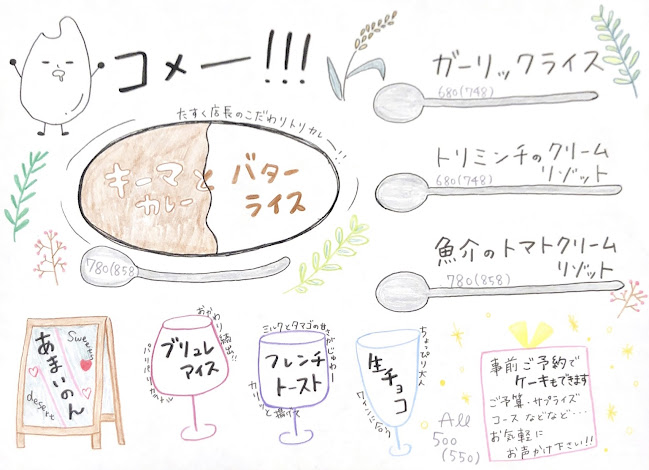 コメー!!!
たすく店長のこだわりトリカレー!!
キーマと
カレー
バター
ライス
780(858)
ガーリックライス
680(748)
トリミンチのクリーム
リゾット
680(748)
魚介のトマトクリーム
リゾット
780(858)
Sweets
あまいのん
desert
おかわり続出!!
ブリュレ
アイス
パリパリ
ミルクとタマゴの甘さがじゅわー
フレンチ
トースト
カリッと焼けて
ちょっぴり大人
生チョコ
ワインに合う
All
500
(550)
事前ご予約で
ケーキもできます
ご予算・サプライズ
コースなどなど・・・
お気軽に
お声かけ下さい!!